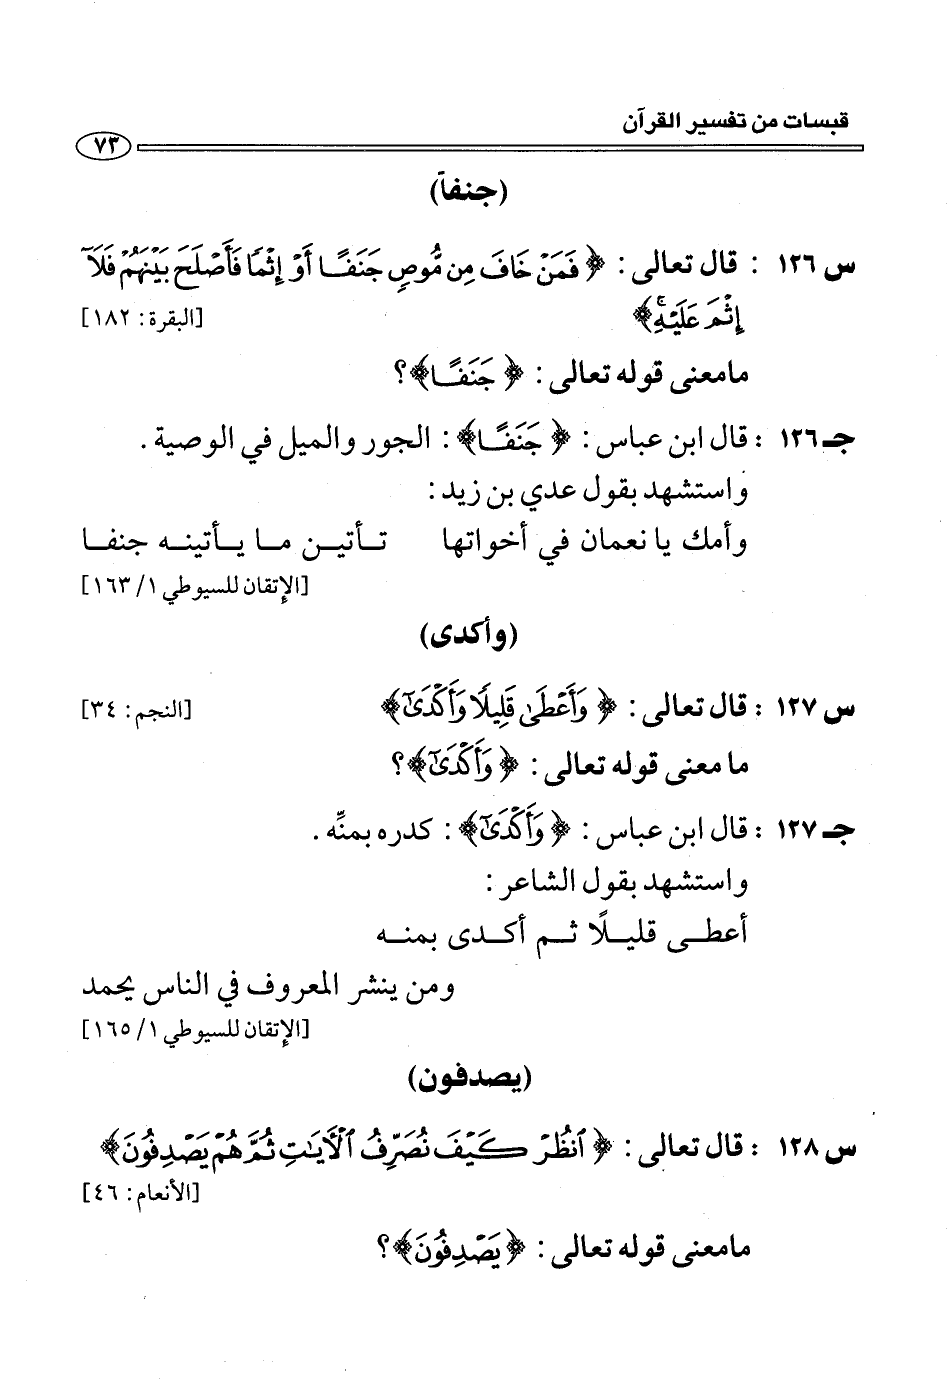 قبسات من تفسير القرآن
٧٣
(جنفاً)
س ١٢٦ : قال تعالى : ﴿ فَمَنْ خَافَ مِن مُّوصٍ جَنَفًا أَوْ إِثْمًا فَأَصْلَحَ بَيْنَهُمْ فَلَآ
إِثْمَ عَلَيْهِۚ﴾ [البقرة: ١٨٢]
مامعنى قوله تعالى : ﴿ جَنَفًا﴾؟
جـ ١٢٦ : قال ابن عباس : ﴿ جَنَفًا﴾ : الجور والميل في الوصية .
واستشهد بقول عدي بن زيد :
وأمك يا نعمان في أخواتها تـأتيـن مـا يـأتينـه جنفـا
[الإتقان للسيوطي ١/ ١٦٣]
(وأكدى)
س ١٢٧ : قال تعالى : ﴿ وَأَعْطَىٰ قَلِيلًا وَأَكْدَىٰٓ﴾ [النجم: ٣٤]
ما معنى قوله تعالى : ﴿ وَأَكْدَىٰٓ﴾؟
جـ ١٢٧ : قال ابن عباس : ﴿ وَأَكْدَىٰٓ﴾ : كدره بمنِّه .
واستشهد بقول الشاعر :
أعطـى قليـلًا ثـم أكـدى بمنـه
ومن ينشر المعروف في الناس يحمد
[الإتقان للسيوطي ١/ ١٦٥]
(يصدفون)
س ١٢٨ : قال تعالى : ﴿ ٱنظُرْ كَيْفَ نُصَرِّفُ ٱلْآيَٰتِ ثُمَّ هُمْ يَصْدِفُونَ﴾
[الأنعام: ٤٦]
مامعنى قوله تعالى : ﴿ يَصْدِفُونَ﴾؟